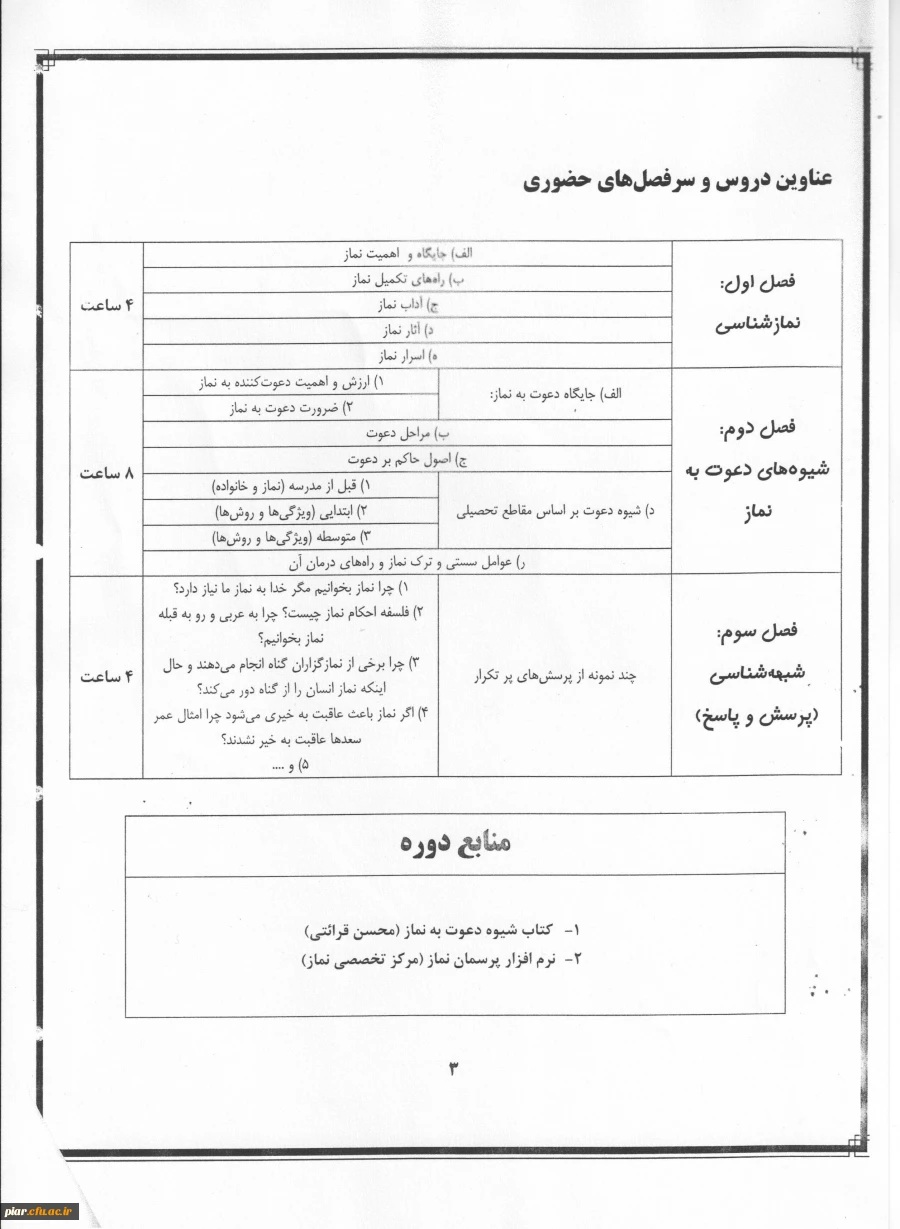 عناوین دروس و سرفصل‌های حضوری
فصل اول:
نمازشناسی
الف) جایگاه و اهمیت نماز
ب) راه‌های تکمیل نماز
ج) آداب نماز
د) آثار نماز
ه) اسرار نماز
۴ ساعت
فصل دوم:
شیوه‌های دعوت به
نماز
الف) جایگاه دعوت به نماز:
۱) ارزش و اهمیت دعوت‌کننده به نماز
۲) ضرورت دعوت به نماز
ب) مراحل دعوت
ج) اصول حاکم بر دعوت
د) شیوه دعوت بر اساس مقاطع تحصیلی
۱) قبل از مدرسه (نماز و خانواده)
۲) ابتدایی (ویژگی‌ها و روش‌ها)
۳) متوسطه (ویژگی‌ها و روش‌ها)
ر) عوامل سستی و ترک نماز و راه‌های درمان آن
۸ ساعت
فصل سوم:
شبهه‌شناسی
(پرسش و پاسخ)
چند نمونه از پرسش‌های پر تکرار
۱) چرا نماز بخوانیم مگر خدا به نماز ما نیاز دارد؟
۲) فلسفه احکام نماز چیست؟ چرا به عربی و رو به قبله
نماز بخوانیم؟
۳) چرا برخی از نمازگزاران گناه انجام می‌دهند و حال
اینکه نماز انسان را از گناه دور می‌کند؟
۴) اگر نماز باعث عاقبت به خیری می‌شود چرا امثال عمر
سعدها عاقبت به خیر نشدند؟
۵) و ....
۴ ساعت
منابع دوره
۱- کتاب شیوه دعوت به نماز (محسن قرائتی)
۲- نرم افزار پرسمان نماز (مرکز تخصصی نماز)
۳
piar.cfu.ac.ir